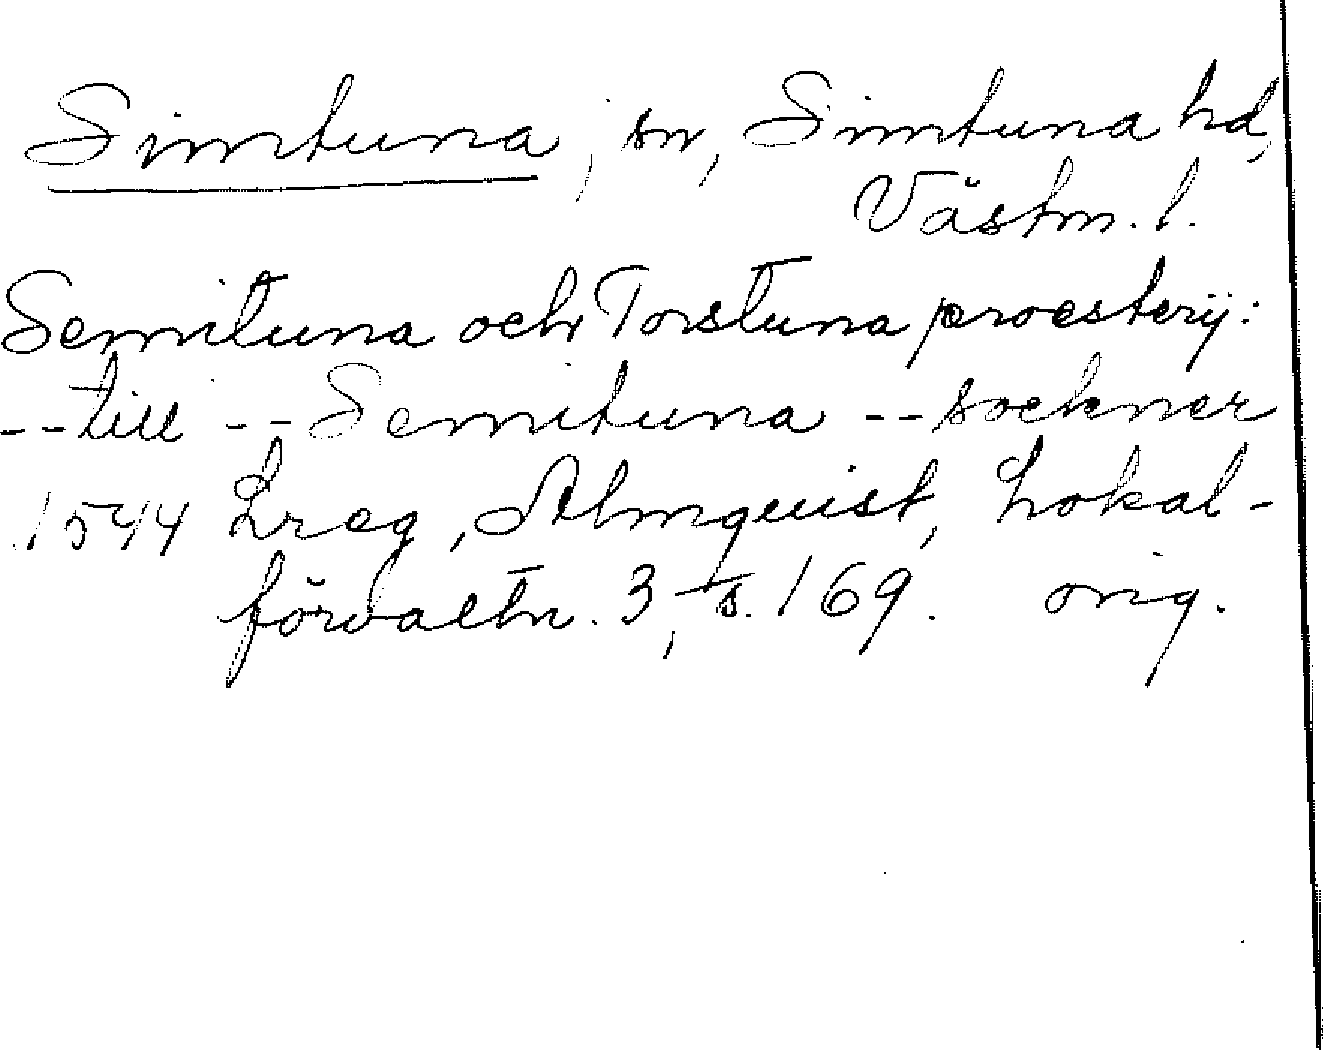 Simtuna, sn, Simtuna hd,
Västm. l.
Semituna och Torstuna proesterij:
-- till -- Semituna -- sockner
1544 Lreg, Almquist, Lokal-
förvaltn. 3, s. 169. orig.